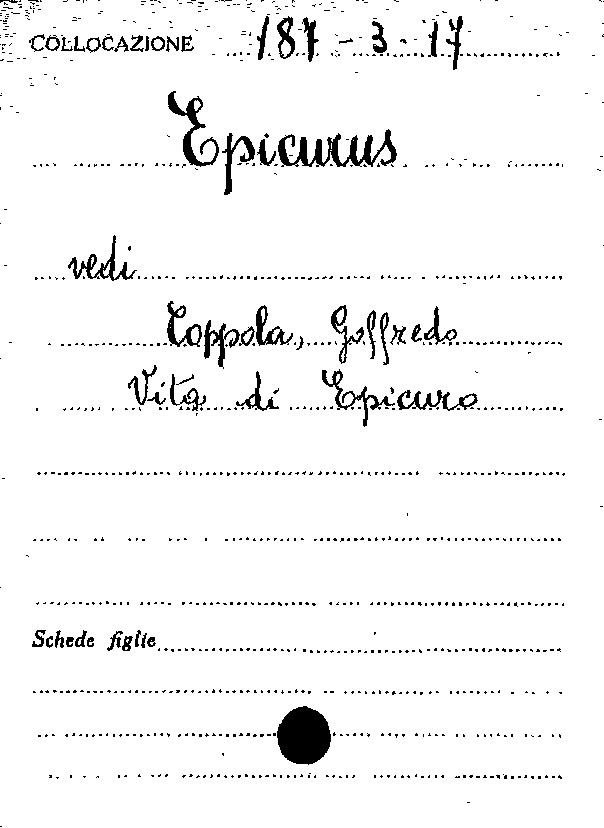 COLLOCAZIONE 187-3-17
Epicurus
vedi
Coppola, Goffredo
Vita di Epicuro
Schede figlie